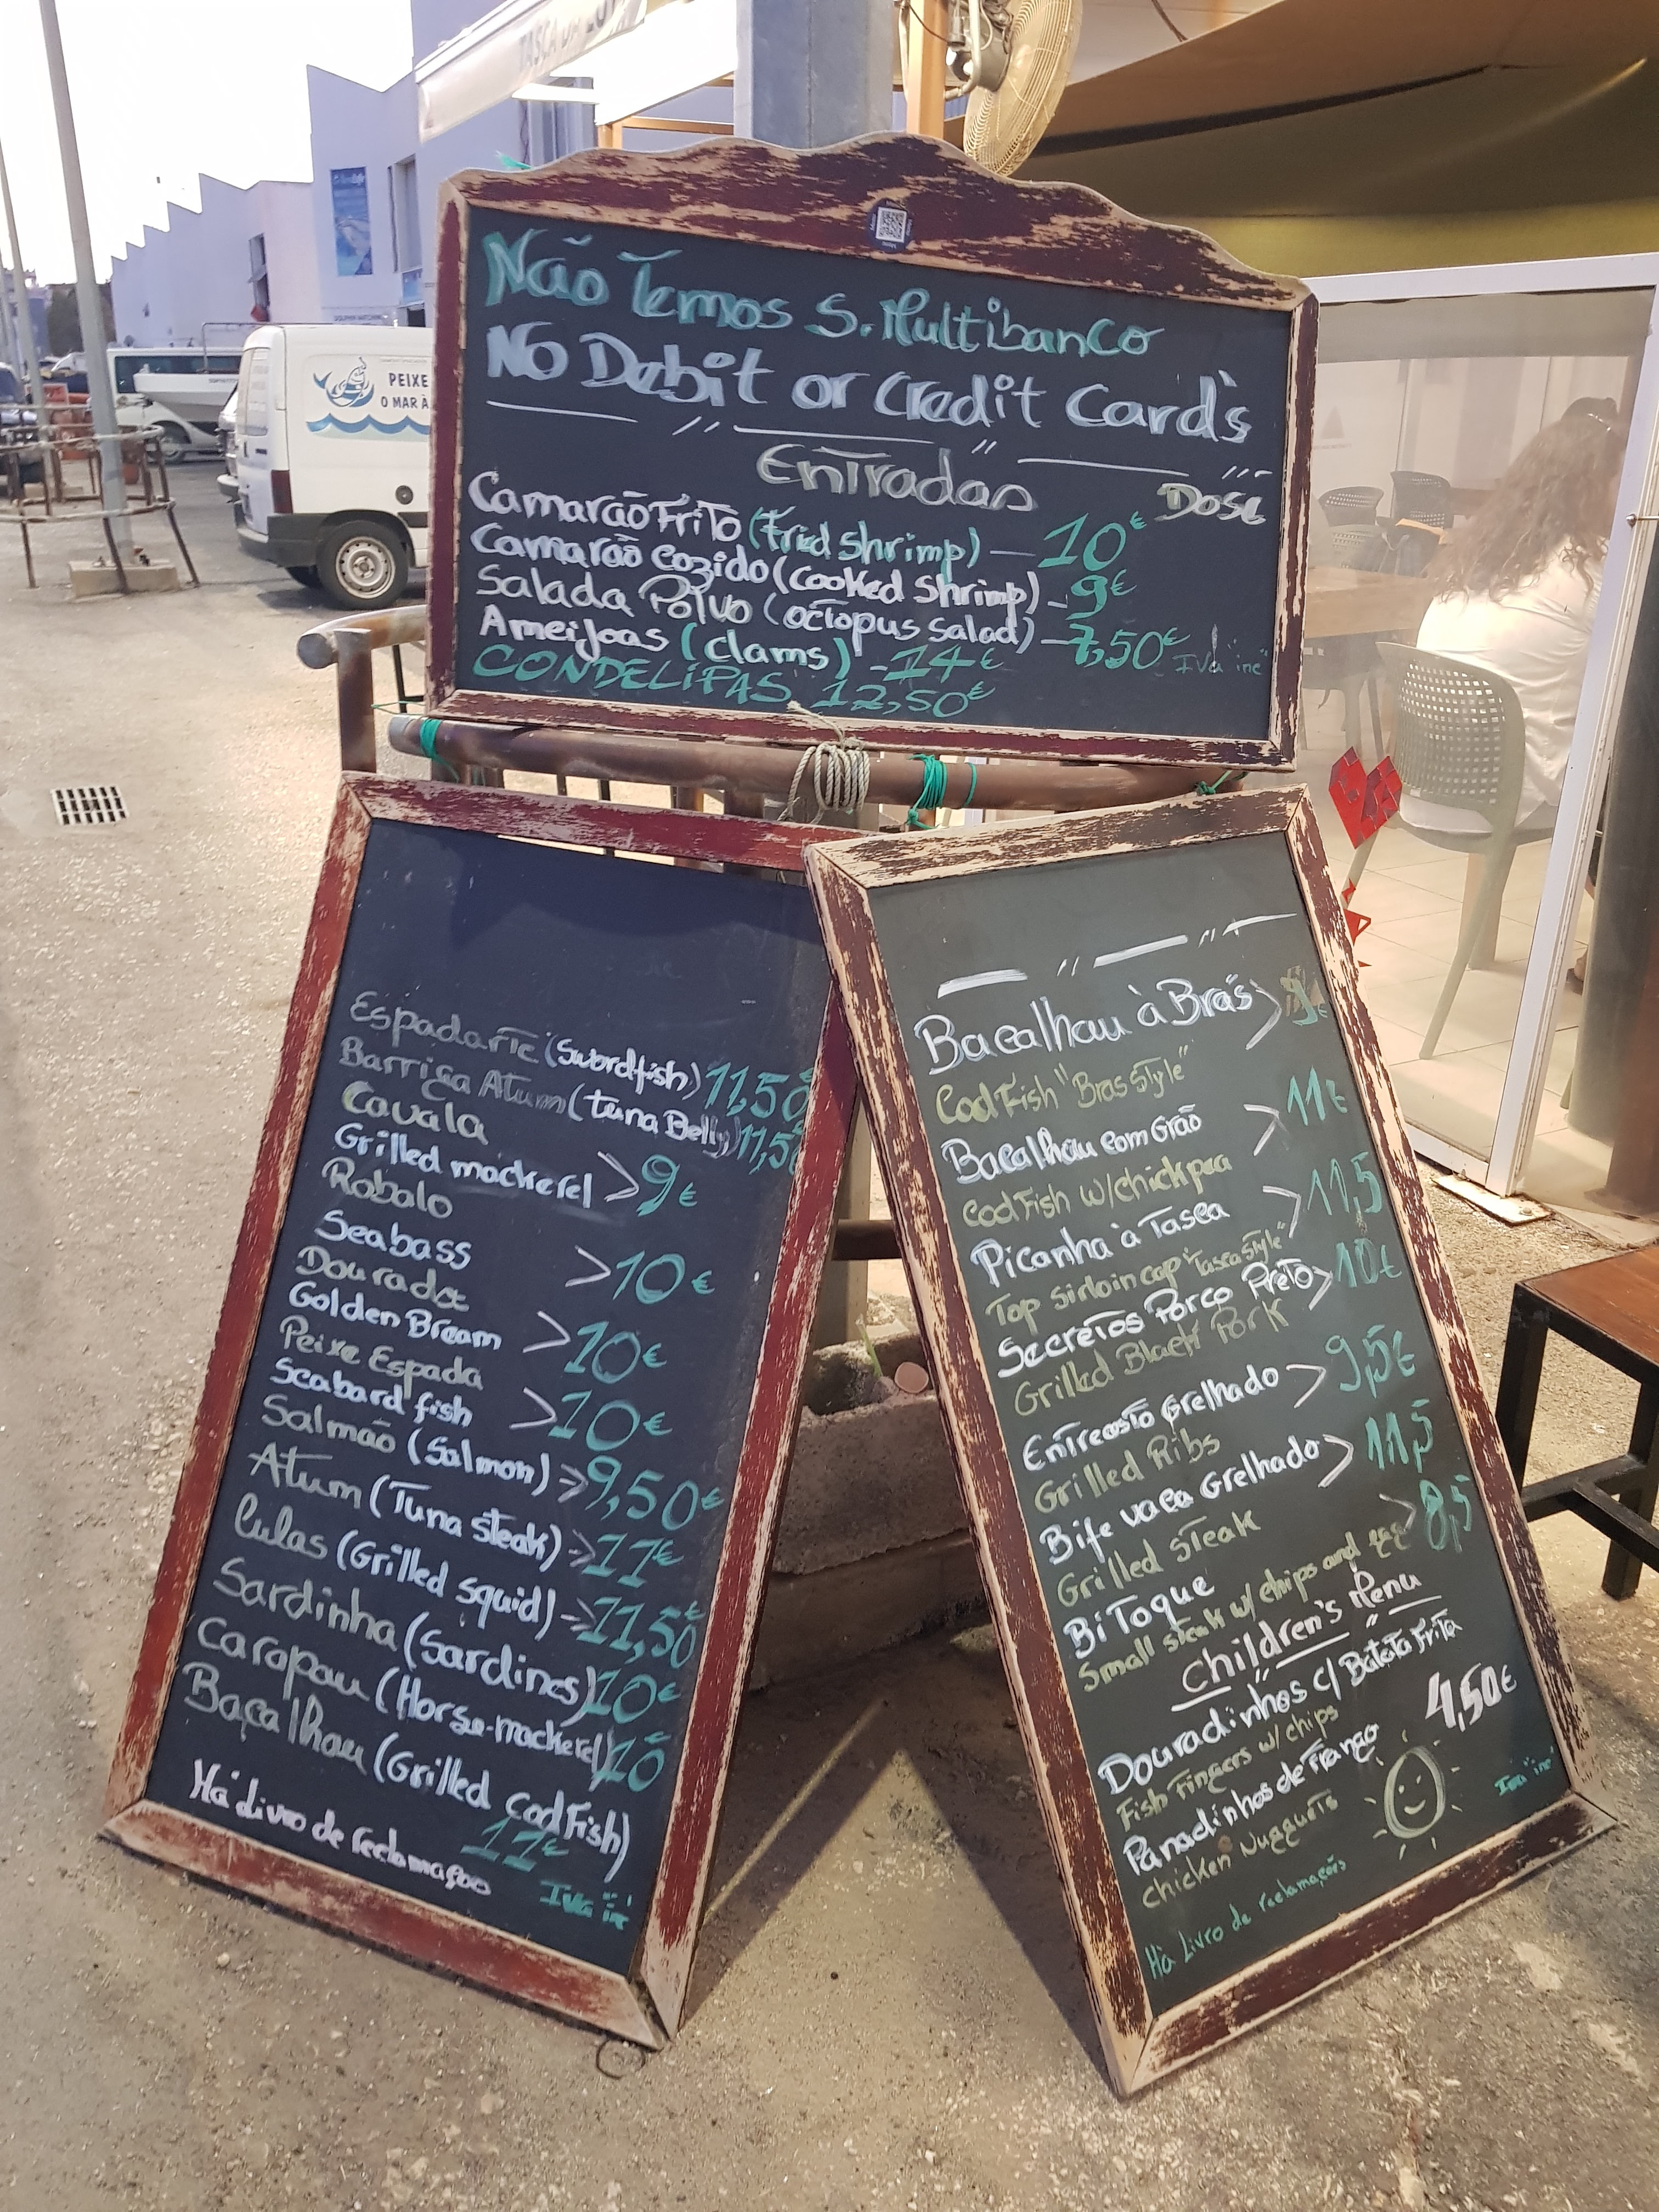 TASCA DA LOTA
PEIXE
O MAR À
Não Temos S. Multibanco
No Debit or Credit Card's
Entradas
Dose
Camarão Frito (Fried shrimp) — 10€
Camarão cozido (cooked shrimp) - 9€
Salada Polvo (octopus salad) — 7,50€
Ameijoas (clams) - 14€
Iva "inc"
CONDELIPAS 12,50€
Espadarte (Swordfish) 11,50
Barriga Atum (tuna Belly) 11,5
Cavala
Grilled mackerel > 9€
Robalo
Seabass > 10€
Dourada
Golden Bream > 10€
Peixe Espada
Scabard fish > 10€
Salmão (Salmon) > 9,50€
Atum (Tuna steak) > 11€
Lulas (Grilled squid) -> 11,50€
Sardinha (Sardines) 10€
Carapau (Horse-mackerel) 10
Baçalhau (Grilled codFish)
11€
Há Livro de reclamações
Iva inc
Bacalhau à Brás > 9€
CodFish "Bras Style"
Bacalhau com Grão > 11€
CodFish w/chickpea
Picanha à Tasca > 11,5
Top sirloin cap "Tasca style"
Secretos Porco Preto > 10€
Grilled Black Pork
Entrecosto Grelhado > 9,5€
Grilled Ribs
Bife vaca Grelhado > 11,5
Grilled steak
Bitoque > 8,5
Small steak w/ chips and egg
Children's Menu
Douradinhos c/ Batata Frita
Fish Fingers w/ chips
4,50€
Panadinhos de Frango
Chicken Nuggets
Iva "inc"
Há Livro de reclamações